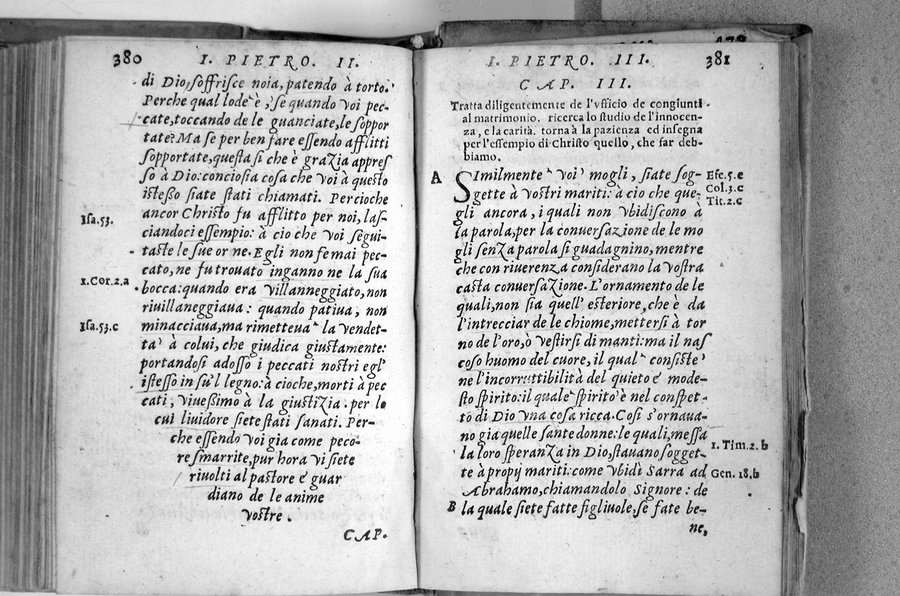 380
I. PIETRO. II.
di Dio, soffrisce noia, patendo à torto.
Perche qual lode è, se quando voi pec-
cate, toccando de le guanciate, le soppor
tate? Ma se per ben fare essendo afflitti
sopportate, questa si che è grazia appres
so à Dio: conciosia cosa che voi à questo
istesso siate stati chiamati. Percioche
ancor Christo fu afflitto per noi, las-
ciandoci essempio: à cio che voi segui-
taste le sue orme. Egli non fe mai pec-
cato, ne fu trouato inganno ne la sua
bocca: quando era villanneggiato, non
riuillaneggiaua: quando patiua, non
minacciaua, ma rimetteua la vendet-
ta à colui, che giudica giustamente:
portandosi adosso i peccati nostri egl'
istesso in su'l legno: à cioche, morti à pec
cati, viuessimo à la giustizia. per le
cui liuidore siete stati sanati. Per-
che essendo voi gia come peco-
re smarrite, pur hora vi siete
riuolti al pastore e guar
diano de le anime
vostre.
CAP.
Isa. 53.
1. Cor. 2. a
Isa. 53. c
I. PIETRO. III.
381
CAP. III.
Tratta diligentemente de l'vfficio de congiunti
al matrimonio. ricerca lo studio de l'innocen-
za, e la carità. torna à la pazienza ed insegna
per l'essempio di Christo quello, che far deb-
biamo.
A
SImilmente voi mogli, siate sog-
gette à vostri mariti: à cio che que-
gli ancora, i quali non vbidiscono à
la parola, per la conuersazione de le mo
gli senza parola si guadagnino, mentre
che con riuerenza considerano la vostra
casta conuersazione. L'ornamento de le
quali, non sia quell' esteriore, che è da
l'intrecciar de le chiome, mettersi à tor
no de l'oro, ò vestirsi di manti: ma il nas
coso huomo del cuore, il qual consiste
ne l'incorruttibilità del quieto e mode-
sto spirito: il quale spirito è nel conspet-
to di Dio vna cosa ricca. Cosi s'ornaua-
no gia quelle sante donne: le quali, messa
la loro speranza in Dio, stauano sogget-
te à proprij mariti: come vbidì Sarra ad
Abrahamo, chiamandolo Signore: de
B la quale siete fatte figliuole, se fate be-
ne,
Efe. 5. e
Col. 3. c
Tit. 2. c
1. Tim. 2. b
Gen. 18. b